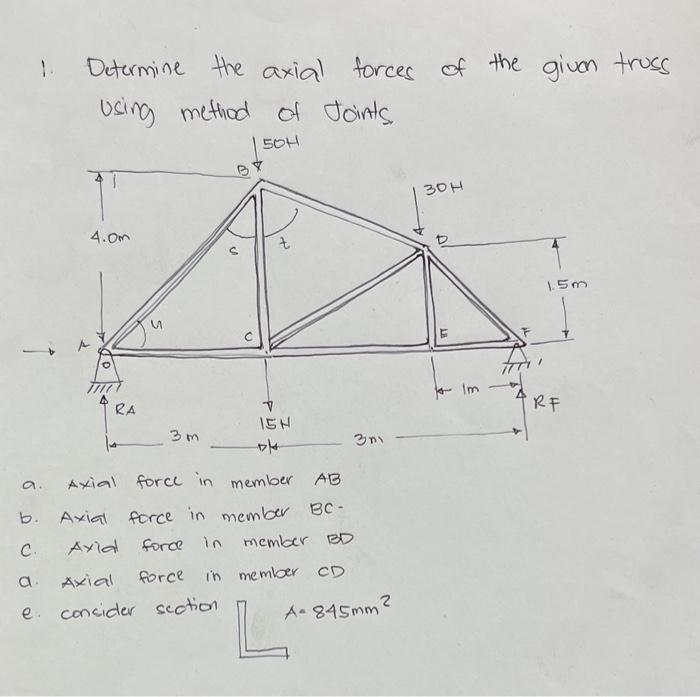 1. Determine the axial forces of the given truss
using method of Joints
50H
B
30H
4.0m
D
s
t
1.5m
u
C
E
F
A
1m
RA
15N
RF
3m
3m
a. Axial force in member AB
b. Axial force in member BC-
c. Axial force in member BD
a. Axial force in member CD
e. consider section A= 845mm²